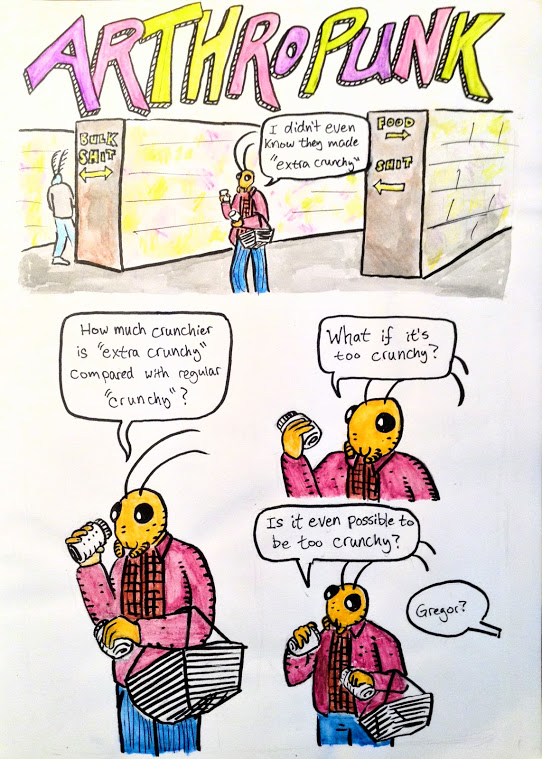 ARTHROPUNK
BULK
SHIT
I didn't even
know they made
"extra crunchy"
FOOD
SHIT
How much crunchier
is "extra crunchy"
compared with regular
"crunchy"?
What if it's
too crunchy?
Is it even possible to
be too crunchy?
Gregor?